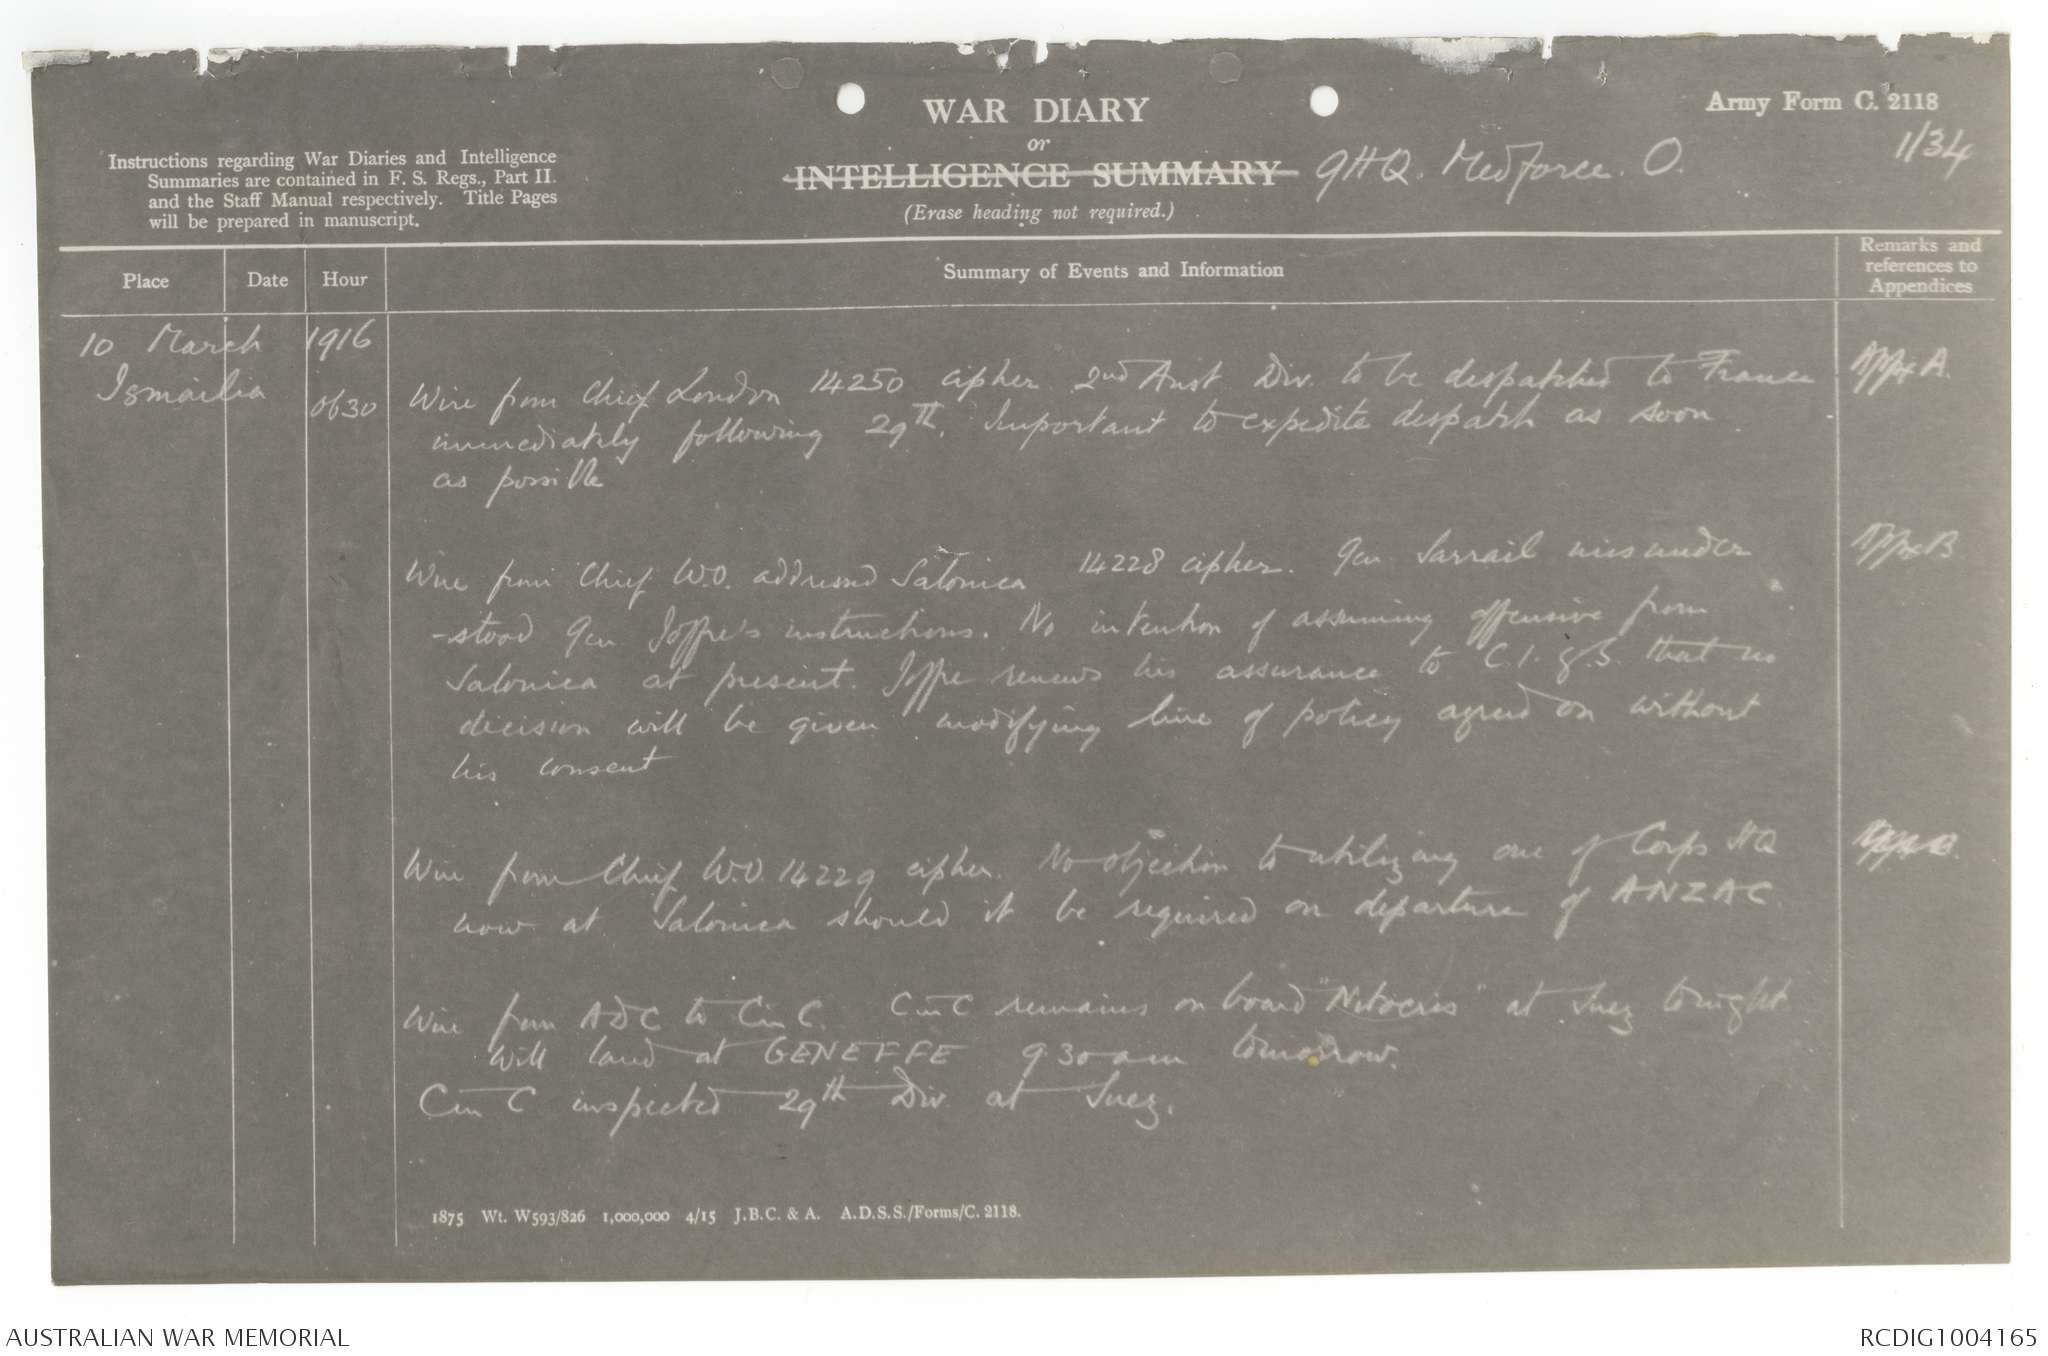 WAR DIARY
or
INTELLIGENCE SUMMARY
(Erase heading not required.)
GHQ. Medforce. O.
Army Form C. 2118
1/34
Instructions regarding War Diaries and Intelligence
Summaries are contained in F. S. Regs., Part II.
and the Staff Manual respectively. Title Pages
will be prepared in manuscript.
Place Date Hour Summary of Events and Information Remarks and
references to
Appendices
10 March 1916
Ismailia 0630 Wire from Chief London 14250 cipher. 2nd Aust Div. to be despatched to France Appx A.
immediately following 29th. Important to expedite despatch as soon
as possible
Wire from Chief W.O. addressed Salonica 14228 cipher. Gen Sarrail misunder Appx B
-stood Gen Joffre's instructions. No intention of assuming offensive from
Salonica at present. Joffre renews his assurance to C.I.G.S. that no
decision will be given modifying line of policy agreed on without
his consent
Wire from Chief W.O. 14229 cipher. No objection to utilizing one of Corps HQ
now at Salonica should it be required on departure of ANZAC.
Wire from ADC to C in C. C in C remains on board "Nitocris" at Suez tonight
Will land at GENEFFE 9.30 am tomorrow.
C in C inspected 29th Div. at Suez.
1875 Wt. W593/826 1,000,000 4/15 J.B.C. & A. A.D.S.S./Forms/C. 2118.
AUSTRALIAN WAR MEMORIAL
RCDIG1004165